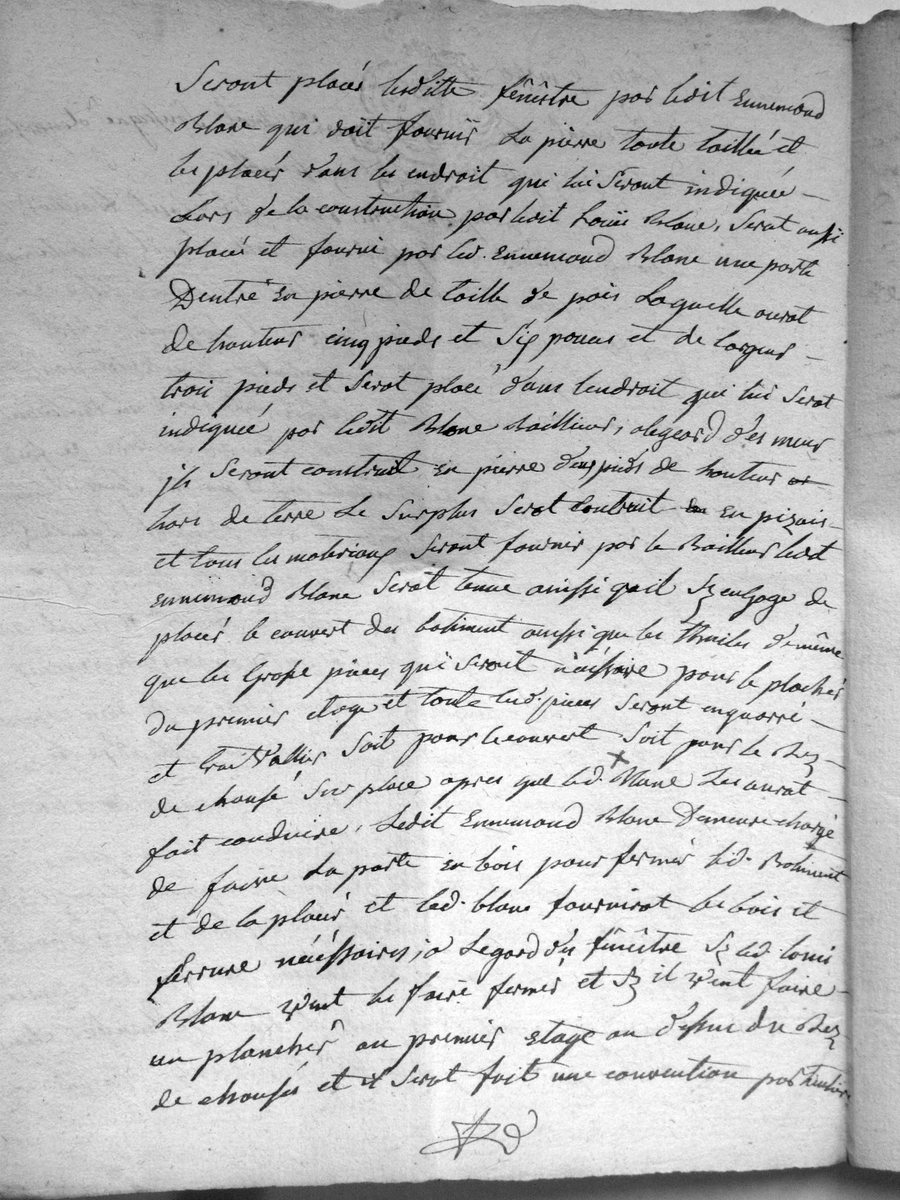 Seront placés lesditte fenêstre par ledit Ennemond
Blanc qui doit fournir La pierre toute taillée et
les placér dans les endroit qui lui Seront indiquée –
Lors de la construction par ledit Louis Blanc, Serat aussi
placé et fourni par led. Ennemond Blanc une porte
Dentré en pierre de taille de pois Laquelle aurat
de hauteur cinq pieds et Six pouces et de largeur –
trois pieds et Serat placé dans lendroit qui lui Serat
indiquée par ledit Blanc Bailleur, alegard des murs
jls Seront construit en pierre deux pieds de hauteur
hors de terre Le Surplus Serat contruit en pizais –
et tous les matériaux Seront fournir par le Bailleur ledit
Ennemond Blanc Serat tenue ainssi quil Sy engage de
placér le couvert du batiment ainssi que les Thuiles de même
que les Grosse pièces qui Seront nécéssaire pour le plachér
du premier etage et toute lesd. pièces Seront enquarré –
et travaillier Soit pour le couvert Soit pour le Rez
de chaussé Sur place apres que led. Blanc Les aurat –
fait conduire, Ledit Ennemond Blanc Demeure chargé
de faire La porte en bois pour fermér led. Batiment
et de la placér et led. blanc fournirat le bois et
ferrure nécéssaires, a Legard des fenêtre Sy led. Louis
Blanc veut les faire fermér et Sy il veut faire –
un planchér au premier etage au dessus du Rez
de chaussés et il Serat fait une convention particulière